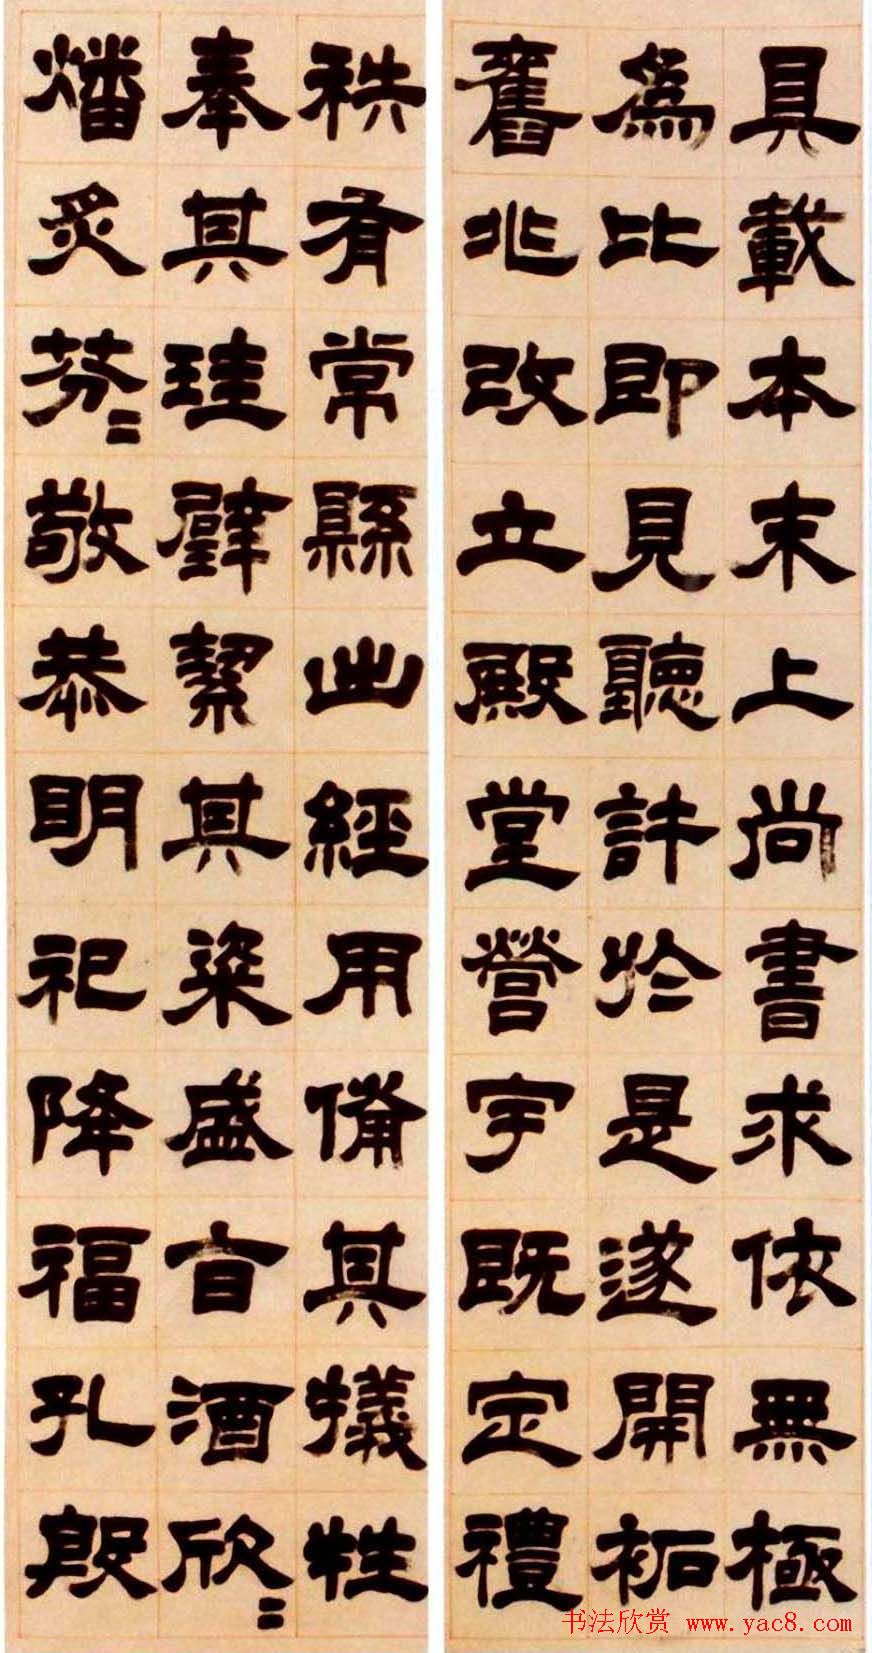 具載本末上尚書求依無極
為比即見聽許於是遂開袥
舊兆改立殿堂營宇既定禮
秩有常縣出經用備其犧牲
奉其珪璧絜其粢盛旨酒欣〻
燔炙芬〻敬恭明祀降福孔殷
书法欣赏 www.yac8.com